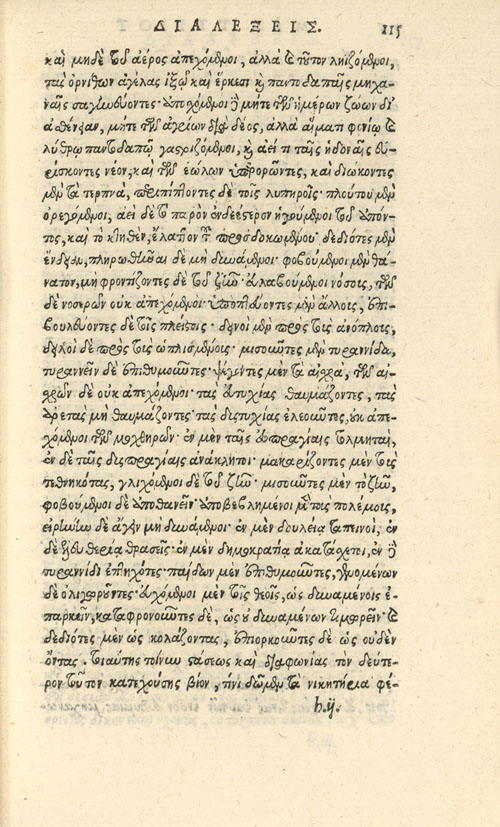 ΔΙΑΛΕΞΕΙΣ. 115
καὶ μηδὲ τοῦ ἀέρος ἀπεχόμενοι, ἀλλὰ καὶ τοῦτον ληϊζόμενοι,
τὰς ὀρνίθων ἀγέλας ἰξῷ καὶ ἕρκεσι καὶ παντοδαπαῖς μηχα-
ναῖς σαγηνεύοντες· ἀπεχόμενοι δὲ μήτε τῶν ἡμέρων ζώων δι'
ἀσθένειαν, μήτε τῶν ἀγρίων διὰ δέος, ἀλλὰ αἵματι φονίῳ καὶ
λύθρῳ παντοδαπῷ γαστριζόμενοι, καὶ ἀεί τι ταῖς ἡδοναῖς εὑ-
ρίσκοντες νέον, καὶ τῶν ἑώλων ὑπερορῶντες, καὶ διώκοντες
μὲν τὰ τερπνὰ, περιπίπτοντες δὲ τοῖς λυπηροῖς· πλούτου μὲν
ὀρεγόμενοι, ἀεὶ δὲ τὸ παρὸν ἐνδεέστερον ἡγούμενοι τοῦ ἀπόν-
τος, καὶ τὸ κτηθὲν, ἔλαττον τοῦ προσδοκωμένου· δεδιότες μὲν
ἔνδειαν, πληρωθῆναι δὲ μὴ δυνάμενοι· φοβούμενοι μὲν θά-
νατον, μὴ φροντίζοντες δὲ τοῦ ζῆν· εὐλαβούμενοι νόσους, τῶν
δὲ νοσερῶν οὐκ ἀπεχόμενοι· ὑποπτεύοντες μὲν ἄλλοις, ἐπι-
βουλεύοντες δὲ τοῖς πλείστοις· δεινοὶ μὲν πρὸς τοὺς ἀνόπλους,
δειλοὶ δὲ πρὸς τοὺς ὡπλισμένους· μισοῦντες μὲν τυραννίδα,
τυραννεῖν δὲ ἐπιθυμοῦντες· ψέγοντες μὲν τὰ αἰσχρὰ, τῶν αἰ-
σχρῶν δὲ οὐκ ἀπεχόμενοι· τὰς εὐτυχίας θαυμάζοντες, τὰς
ἀρετὰς μὴ θαυμάζοντες· τὰς δυστυχίας ἐλεοῦντες, οὐκ ἀπε-
χόμενοι τῶν μοχθηρῶν· ἐν μὲν ταῖς εὐπραγίαις τολμηταὶ,
ἐν δὲ ταῖς δυσπραγίαις ἀνάκλητοι· μακαρίζοντες μὲν τοὺς
τεθνηκότας, γλιχόμενοι δὲ τοῦ ζῆν· μισοῦντες μὲν τὸ ζῆν,
φοβούμενοι δὲ ἀποθανεῖν· προβεβλημένοι μὲν τοὺς πολέμους,
εἰρήνην δὲ ἄγειν μὴ δυνάμενοι· ἐν μὲν δουλείᾳ ταπεινοὶ, ἐν
δὲ ἐλευθερίᾳ θρασεῖς· ἐν μὲν δημοκρατίᾳ ἀκατάσχετοι, ἐν δὲ
τυραννίδι ἐπτηχότες· παίδων μὲν ἐπιθυμοῦντες, γενομένων
δὲ ὀλιγωροῦντες· εὐχόμενοι μὲν τοῖς θεοῖς, ὡς δυναμένοις ἐ-
παρκεῖν, καταφρονοῦντες δὲ, ὡς οὐ δυναμένων τιμωρεῖν· καὶ
δεδιότες μὲν ὡς κολάζοντας, ἐπιορκοῦντες δὲ ὡς οὐδὲν
ὄντας. τοιαύτης τοίνυν στάσεως καὶ διαφωνίας τὸν δεύτε-
ρον τοῦτον κατεχούσης βίον, τίνι δῶμεν τὰ νικητήρια φέ-
h.ij.